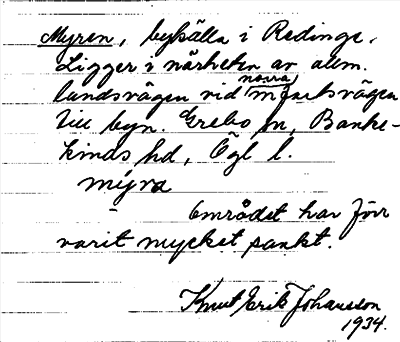 Myren, bykälla i Redinge.
Ligger i närheten av allm.
landsvägen vid norra
till byn. Grebo sn, Banke-
kinds hd, Ögl l.
myra
Området har förr
varit mycket sankt.
Knut Erik Johansson
1934.